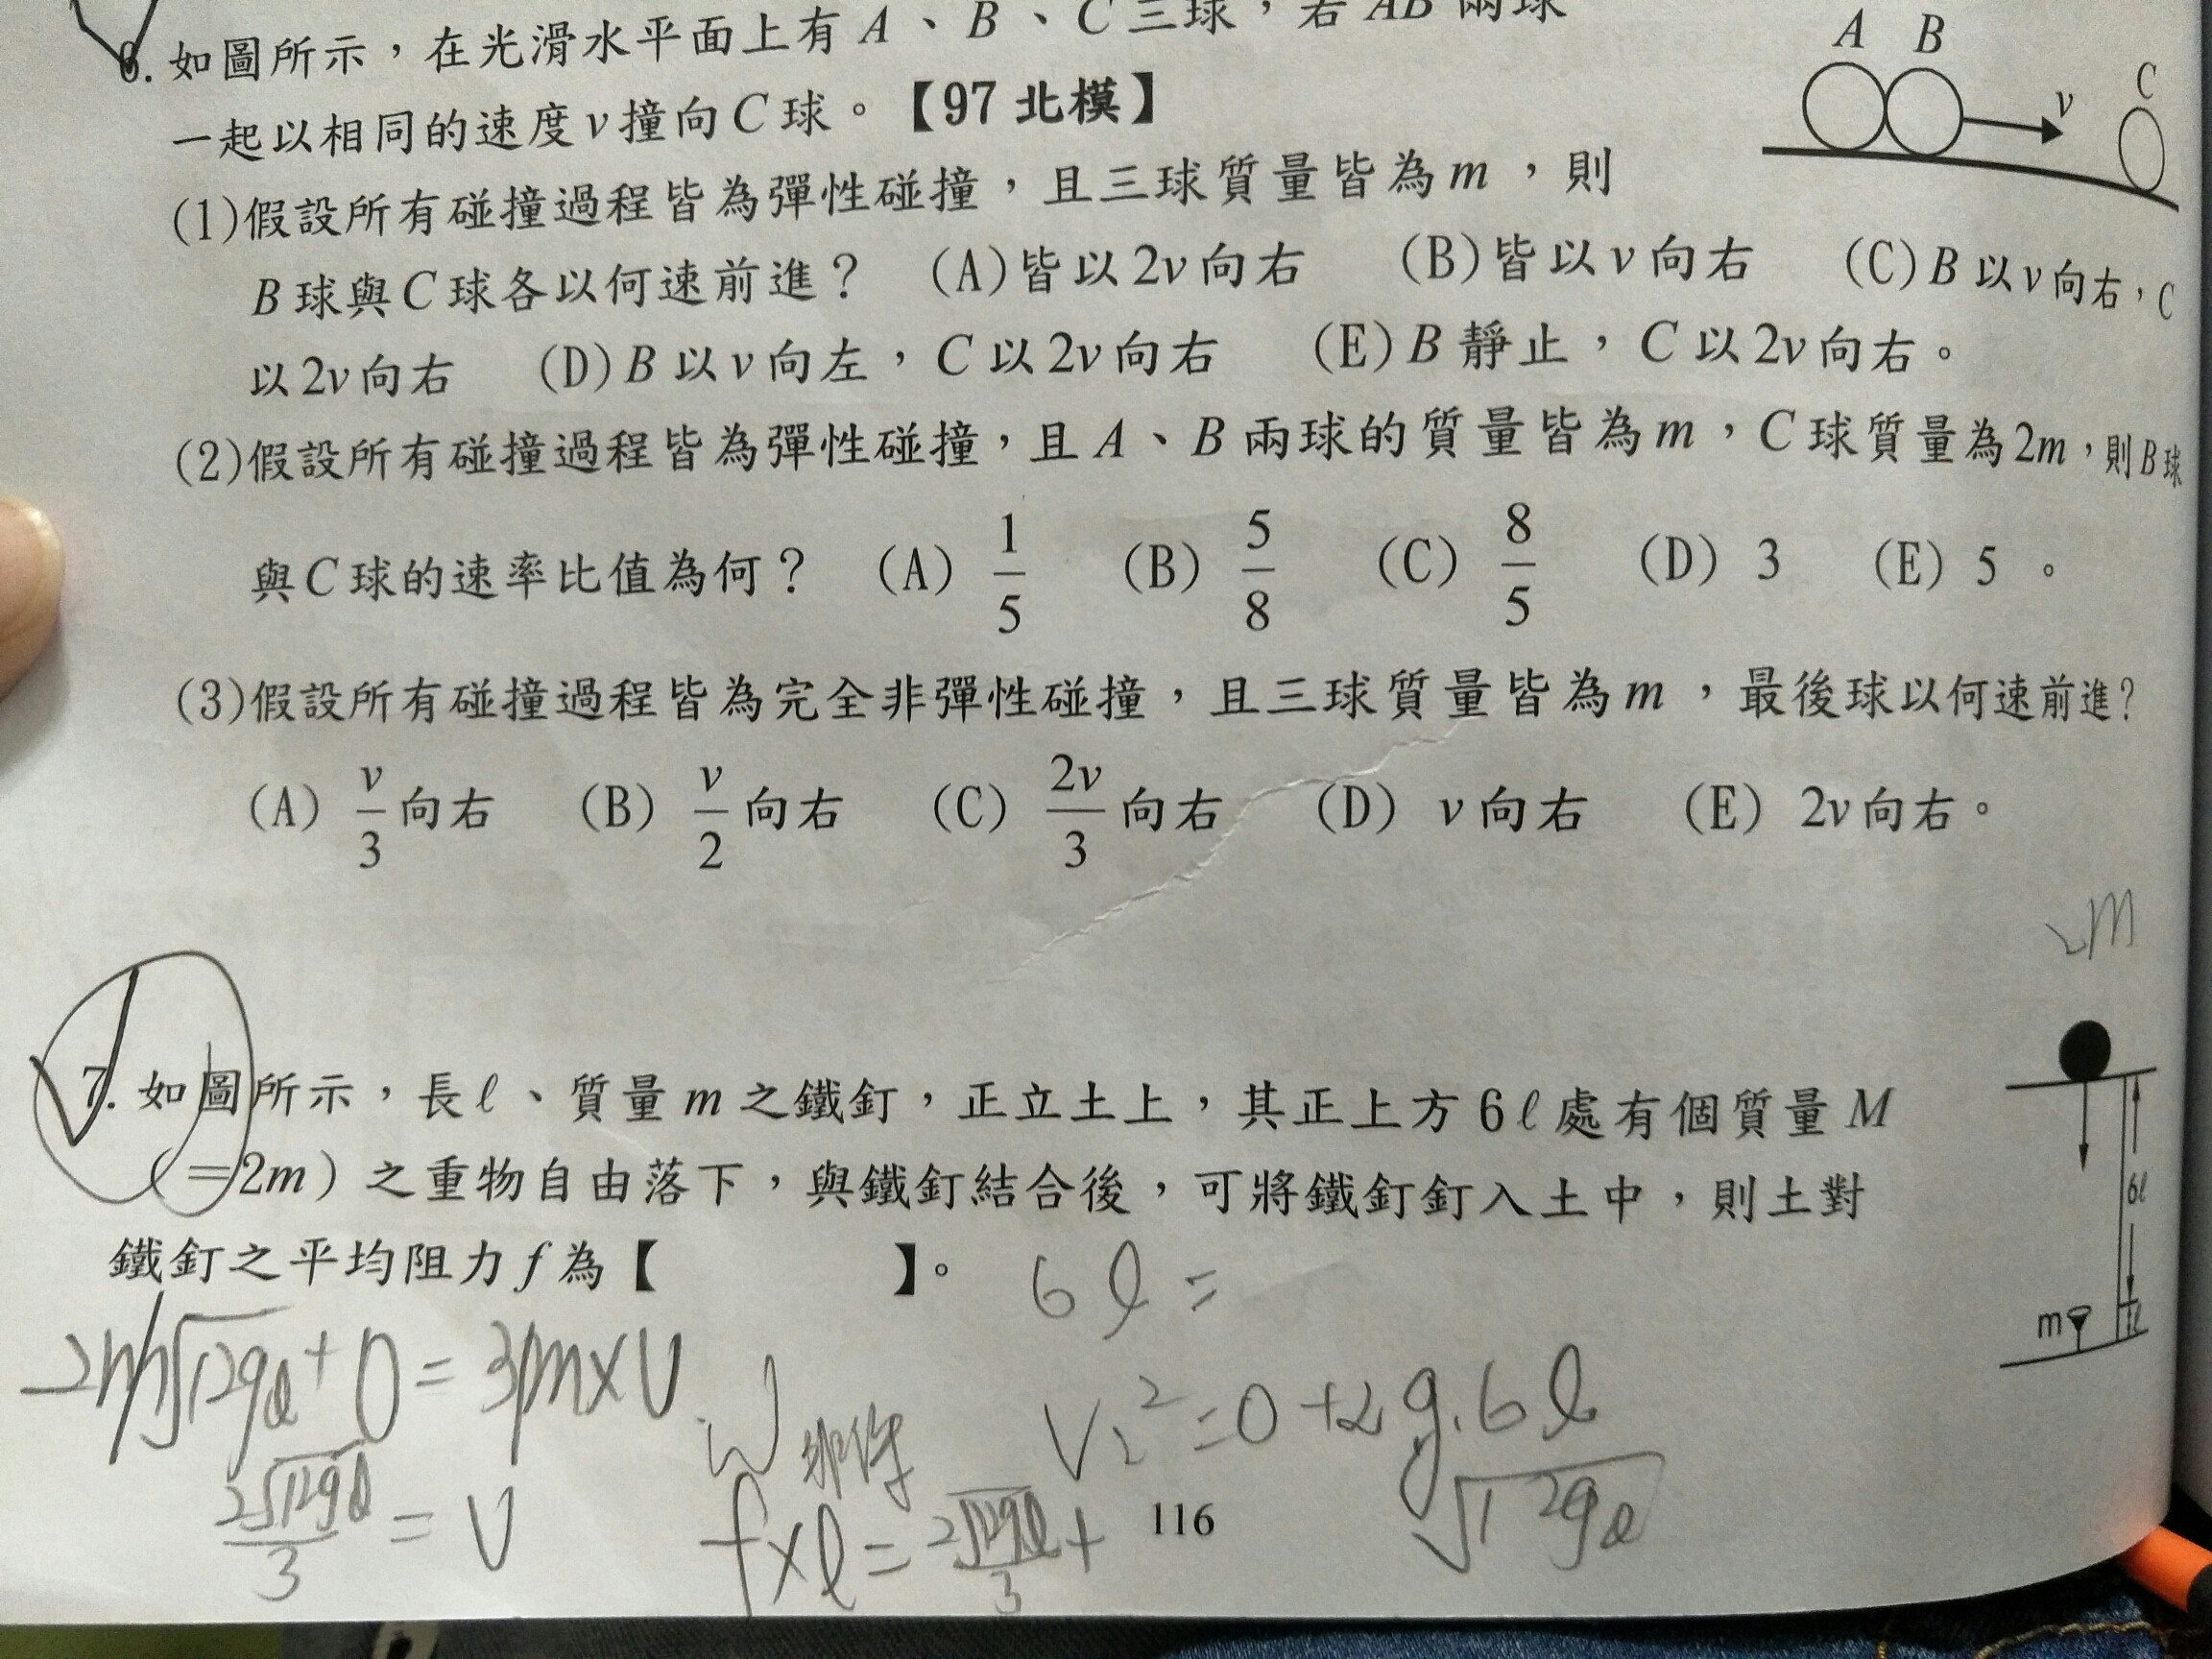 6. 如圖所示，在光滑水平面上有 A、B、C 三球，若 AB 兩球
一起以相同的速度 v 撞向 C 球。【97 北模】
A B
v
C
(1)假設所有碰撞過程皆為彈性碰撞，且三球質量皆為 m，則
B 球與 C 球各以何速前進？ (A)皆以 2v 向右 (B)皆以 v 向右 (C) B 以 v 向右，C
以 2v 向右 (D) B 以 v 向左，C 以 2v 向右 (E) B 靜止，C 以 2v 向右。
(2)假設所有碰撞過程皆為彈性碰撞，且 A、B 兩球的質量皆為 m，C 球質量為 2m，則 B 球
與 C 球的速率比值為何？ (A) 1/5 (B) 5/8 (C) 8/5 (D) 3 (E) 5 。
(3)假設所有碰撞過程皆為完全非彈性碰撞，且三球質量皆為 m，最後球以何速前進？
(A) v/3 向右 (B) v/2 向右 (C) 2v/3 向右 (D) v 向右 (E) 2v 向右。
2M
7. 如圖所示，長 ℓ、質量 m 之鐵釘，正立土上，其正上方 6ℓ 處有個質量 M
（=2m）之重物自由落下，與鐵釘結合後，可將鐵釘釘入土中，則土對
鐵釘之平均阻力 f 為【 】。
6ℓ
m
ℓ
6ℓ =
2m√12gℓ + 0 = 3m×V
V₂² = 0 + 2g.6ℓ
√12gℓ
2√12gℓ/3 = V
W非保
f×ℓ = 2√12gℓ/3 +
116